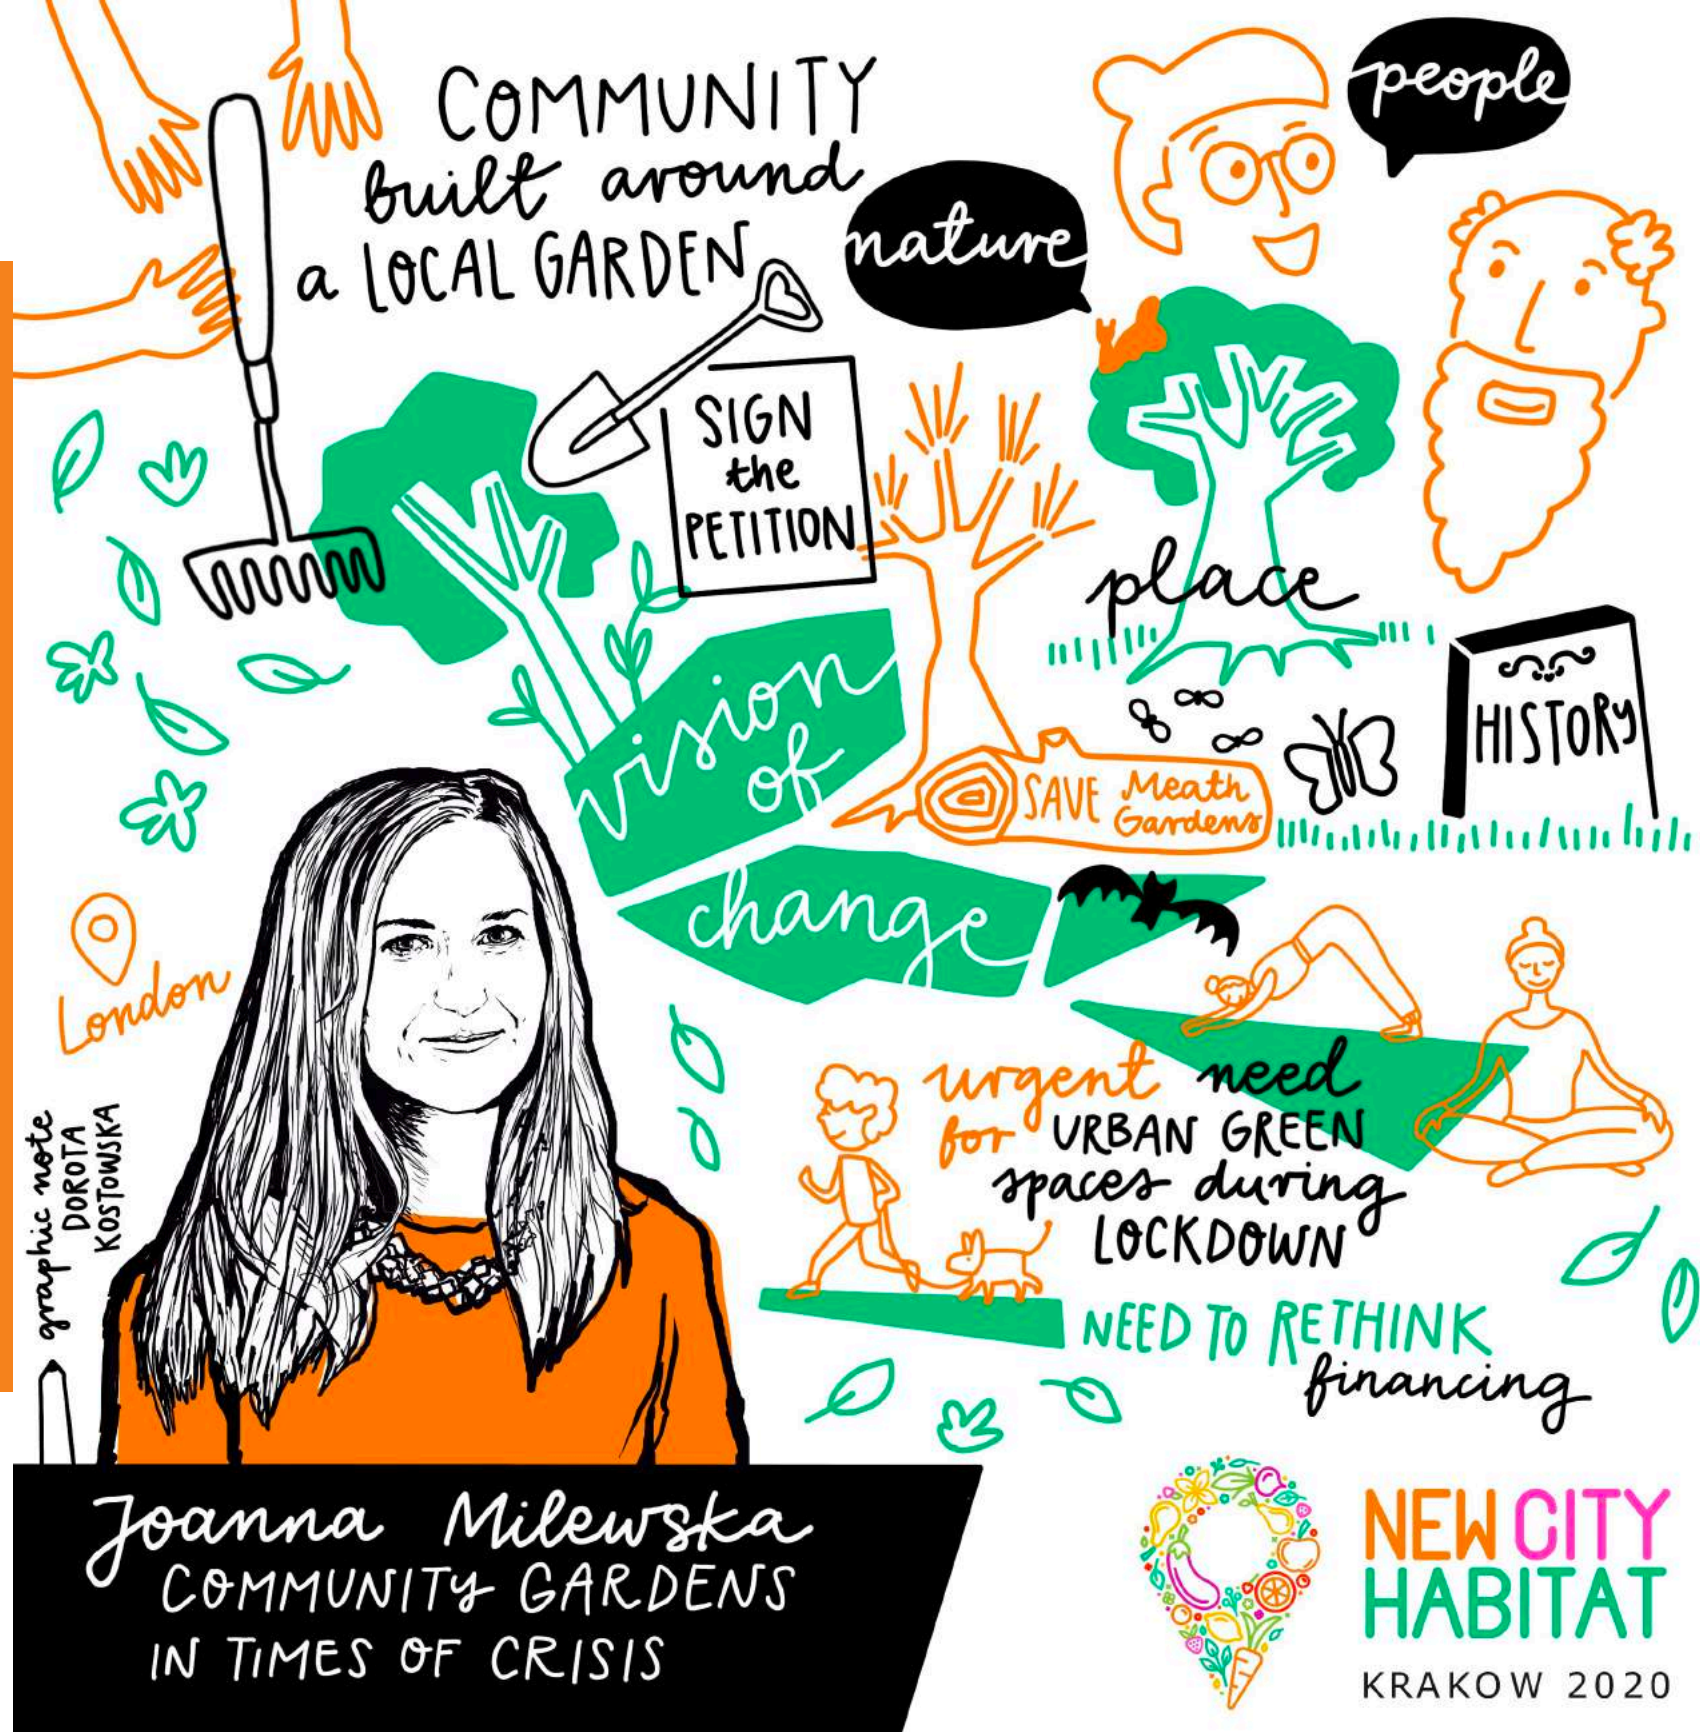 COMMUNITY
built around
a LOCAL GARDEN
people
nature
SIGN
the
PETITION
place
HISTORY
vision
of
change
SAVE Meath
Gardens
London
urgent need
for URBAN GREEN
spaces during
LOCKDOWN
NEED TO RETHINK
financing
graphic note
DOROTA
KOSTOWSKA
Joanna Milewska
COMMUNITY GARDENS
IN TIMES OF CRISIS
NEW CITY
HABITAT
KRAKOW 2020